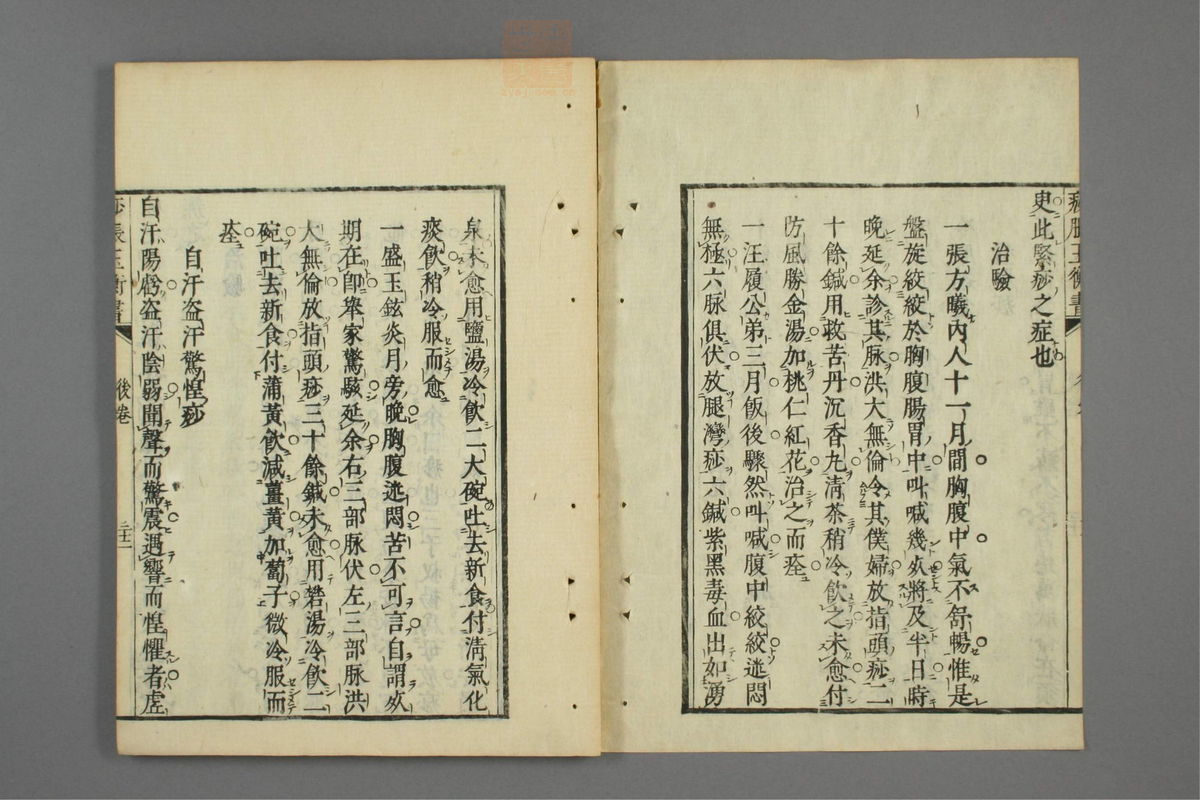 痧脹玉衡書
臾此緊痧之症也
治驗
一張方曦內人十一月間胸腹中氣不舒暢惟是
盤旋絞絞於胸腹腸胃中叫喊幾死將及半日時
晚延余診其脉洪大無倫令其僕婦放指頭痧二
十餘鍼用救苦丹沉香丸清茶稍冷飮之未愈付
防風勝金湯加桃仁紅花治之而痊
一汪履公弟三月飯後驟然叫喊腹中絞絞迷悶
無極六脉俱伏放腿灣痧六鍼紫黑毒血出如湧
泉未愈用鹽湯冷飮二大碗吐去新食付淸氣化
痰飮稍冷服而愈
一盛玉鉉炎月旁晚胸腹迷悶苦不可言自謂死
期在卽舉家驚駭延余右三部脉伏左三部脉洪
大無倫放指頭痧三十餘鍼未愈用礬湯冷飮二
碗吐去新食付蒲黃飮減薑黃加蔔子微冷服而
痊
自汗盗汗驚惶痧
自汗陽虧盗汗陰弱聞聲而驚震遇響而惶懼者虗
痧脹玉衡書 後卷